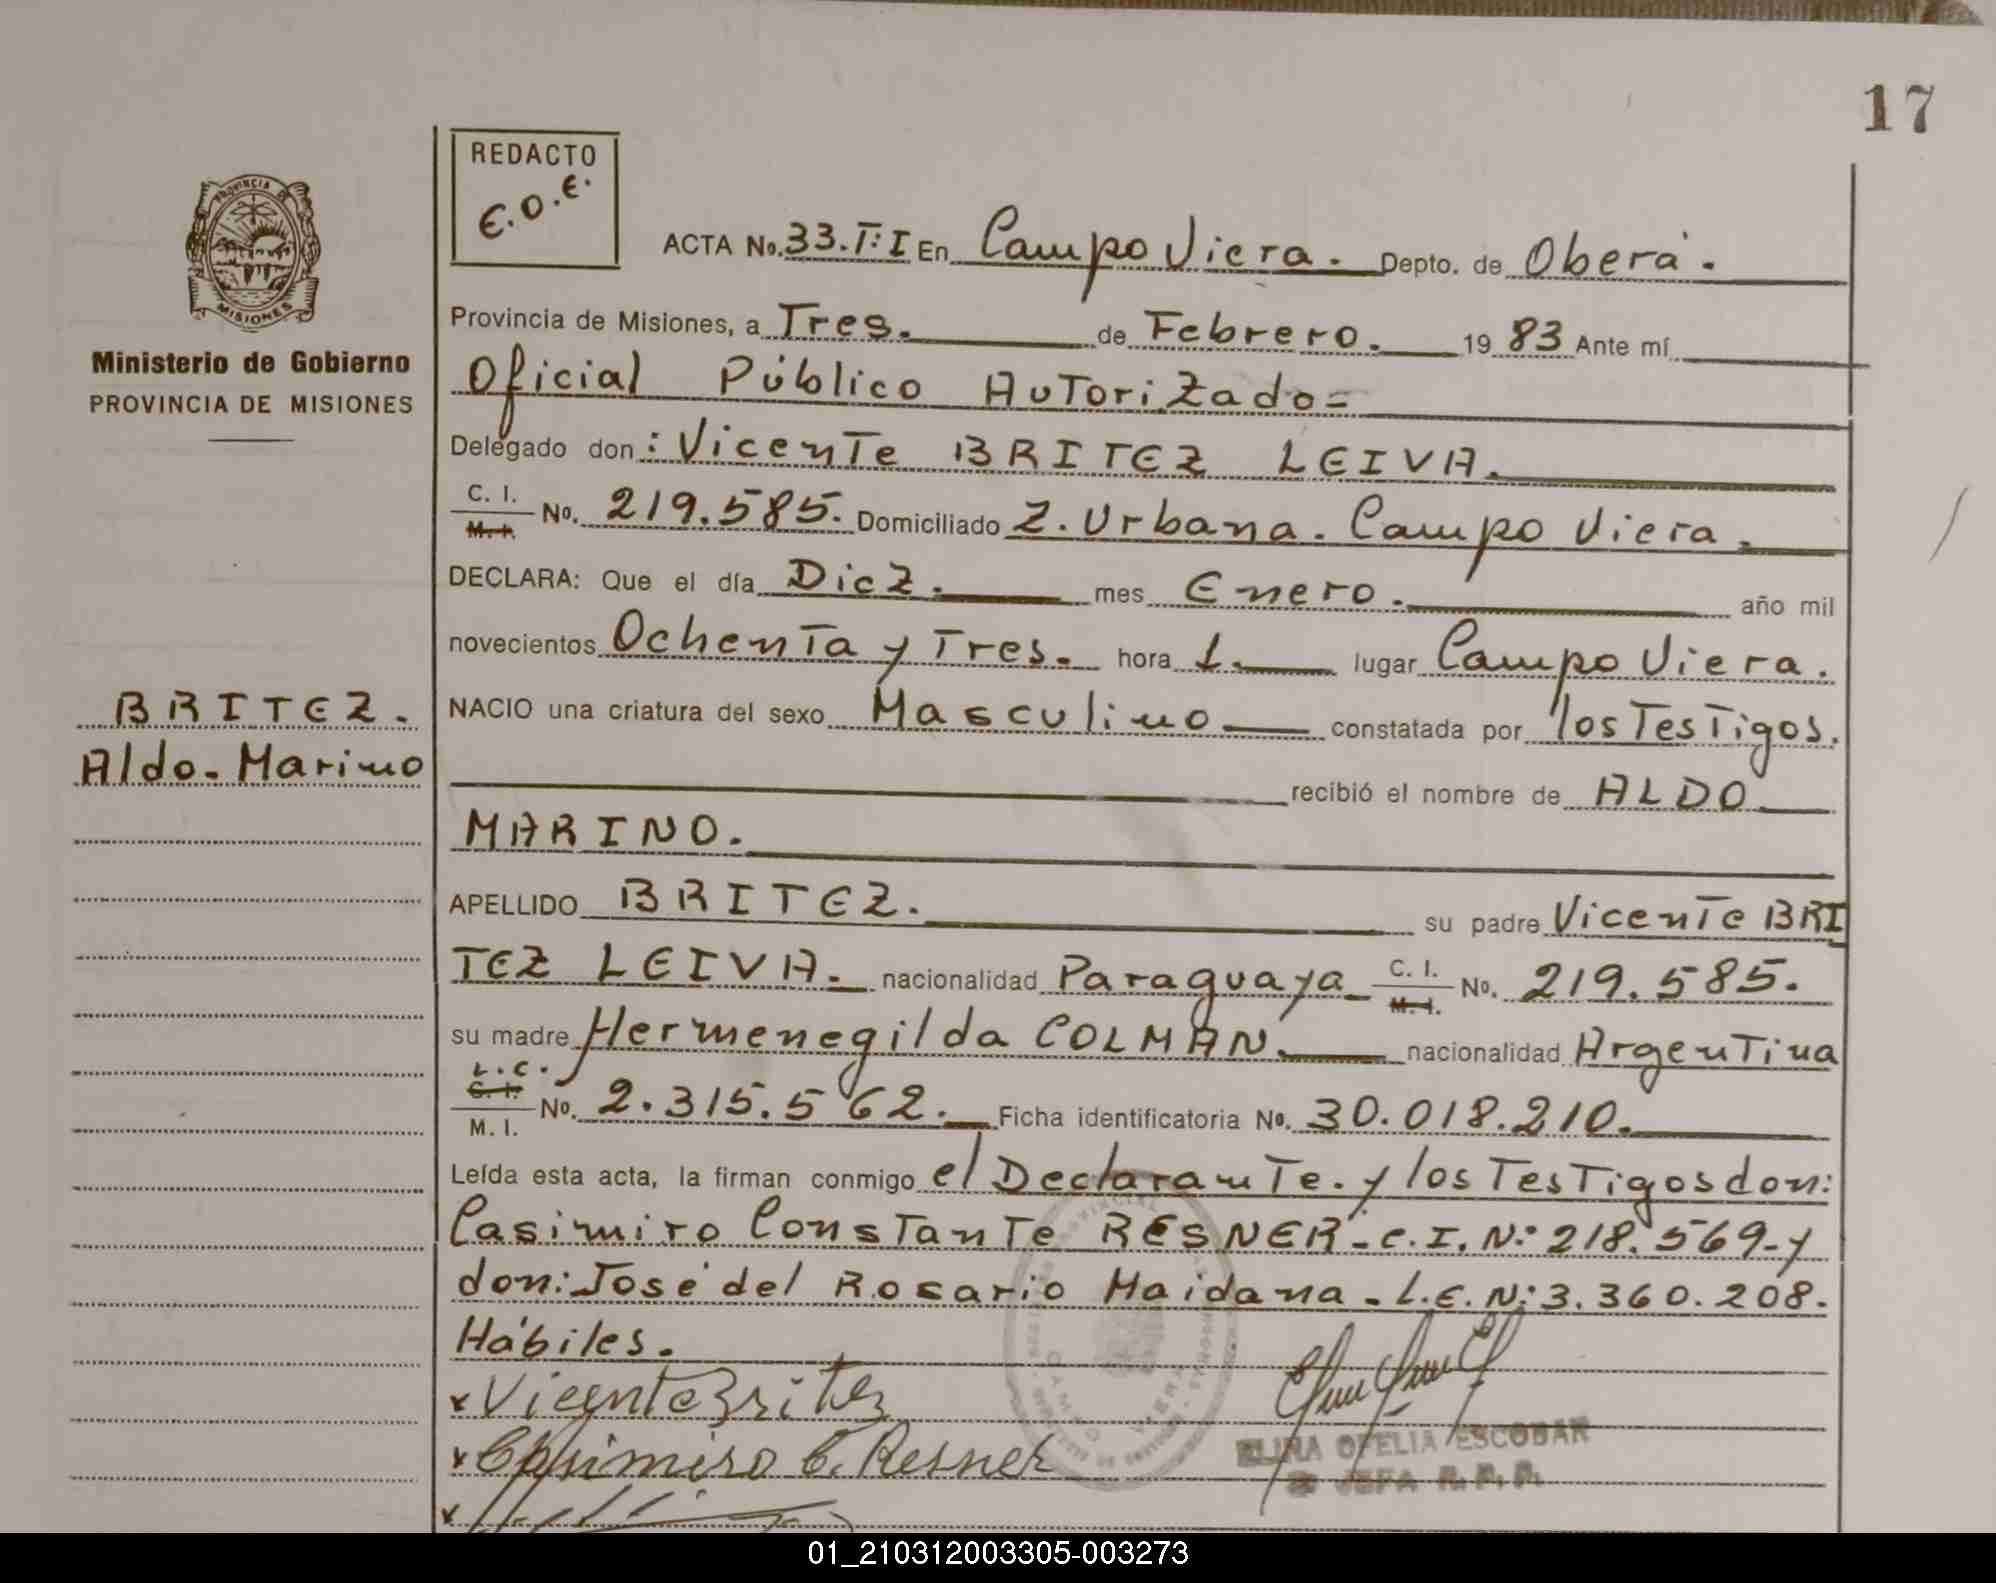 17
REDACTO
E.O.E.
PROVINCIA DE
MISIONES
Ministerio de Gobierno
PROVINCIA DE MISIONES
ACTA No. 33.T:I En Campo Viera. Depto. de Oberá.
Provincia de Misiones, a Tres. de Febrero. 19 83 Ante mí
Oficial Público Autorizado=
Delegado don: Vicente BRITEZ LEIVA.
C. I. M. I. No. 219.585. Domiciliado Z. Urbana. Campo Viera.
DECLARA: Que el día Diez. mes Enero. año mil
novecientos Ochenta y Tres. hora 1. lugar Campo Viera.
BRITEZ.
Aldo. Marino
NACIO una criatura del sexo Masculino constatada por los Testigos.
recibió el nombre de ALDO
MARINO.
APELLIDO BRITEZ. su padre Vicente BRI
TEZ LEIVA. nacionalidad Paraguaya C. I. M. I. No. 219.585.
su madre Hermenegilda COLMAN. nacionalidad Argentina
L.C. C. I. M. I. No. 2.315.562. Ficha identificatoria No. 30.018.210.
Leída esta acta, la firman conmigo el Declarante. y los Testigos don:
Casimiro Constante RESNER-C.I.N: 218.569-y
don: José del Rosario Maidana. L.E.N: 3.360.208.
Hábiles.
x Vicente Britez
x Casimiro C. Resner
x
ELIRA OFELIA ESCOBAR
JEFA R.P.P.
CAMPO VIERA
01_210312003305-003273